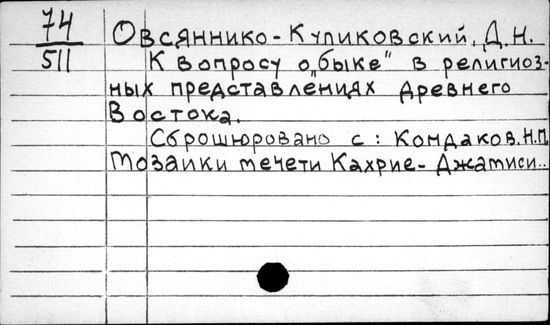 74
511
Овсяннико-Куликовский, Д.Н.
К вопросу о „быке" в религиоз-
ных представлениях древнего
Востока.
Сброшюровано с: Кондаков, Н.П.
Мозаики мечети Кахрие-Джамиси...